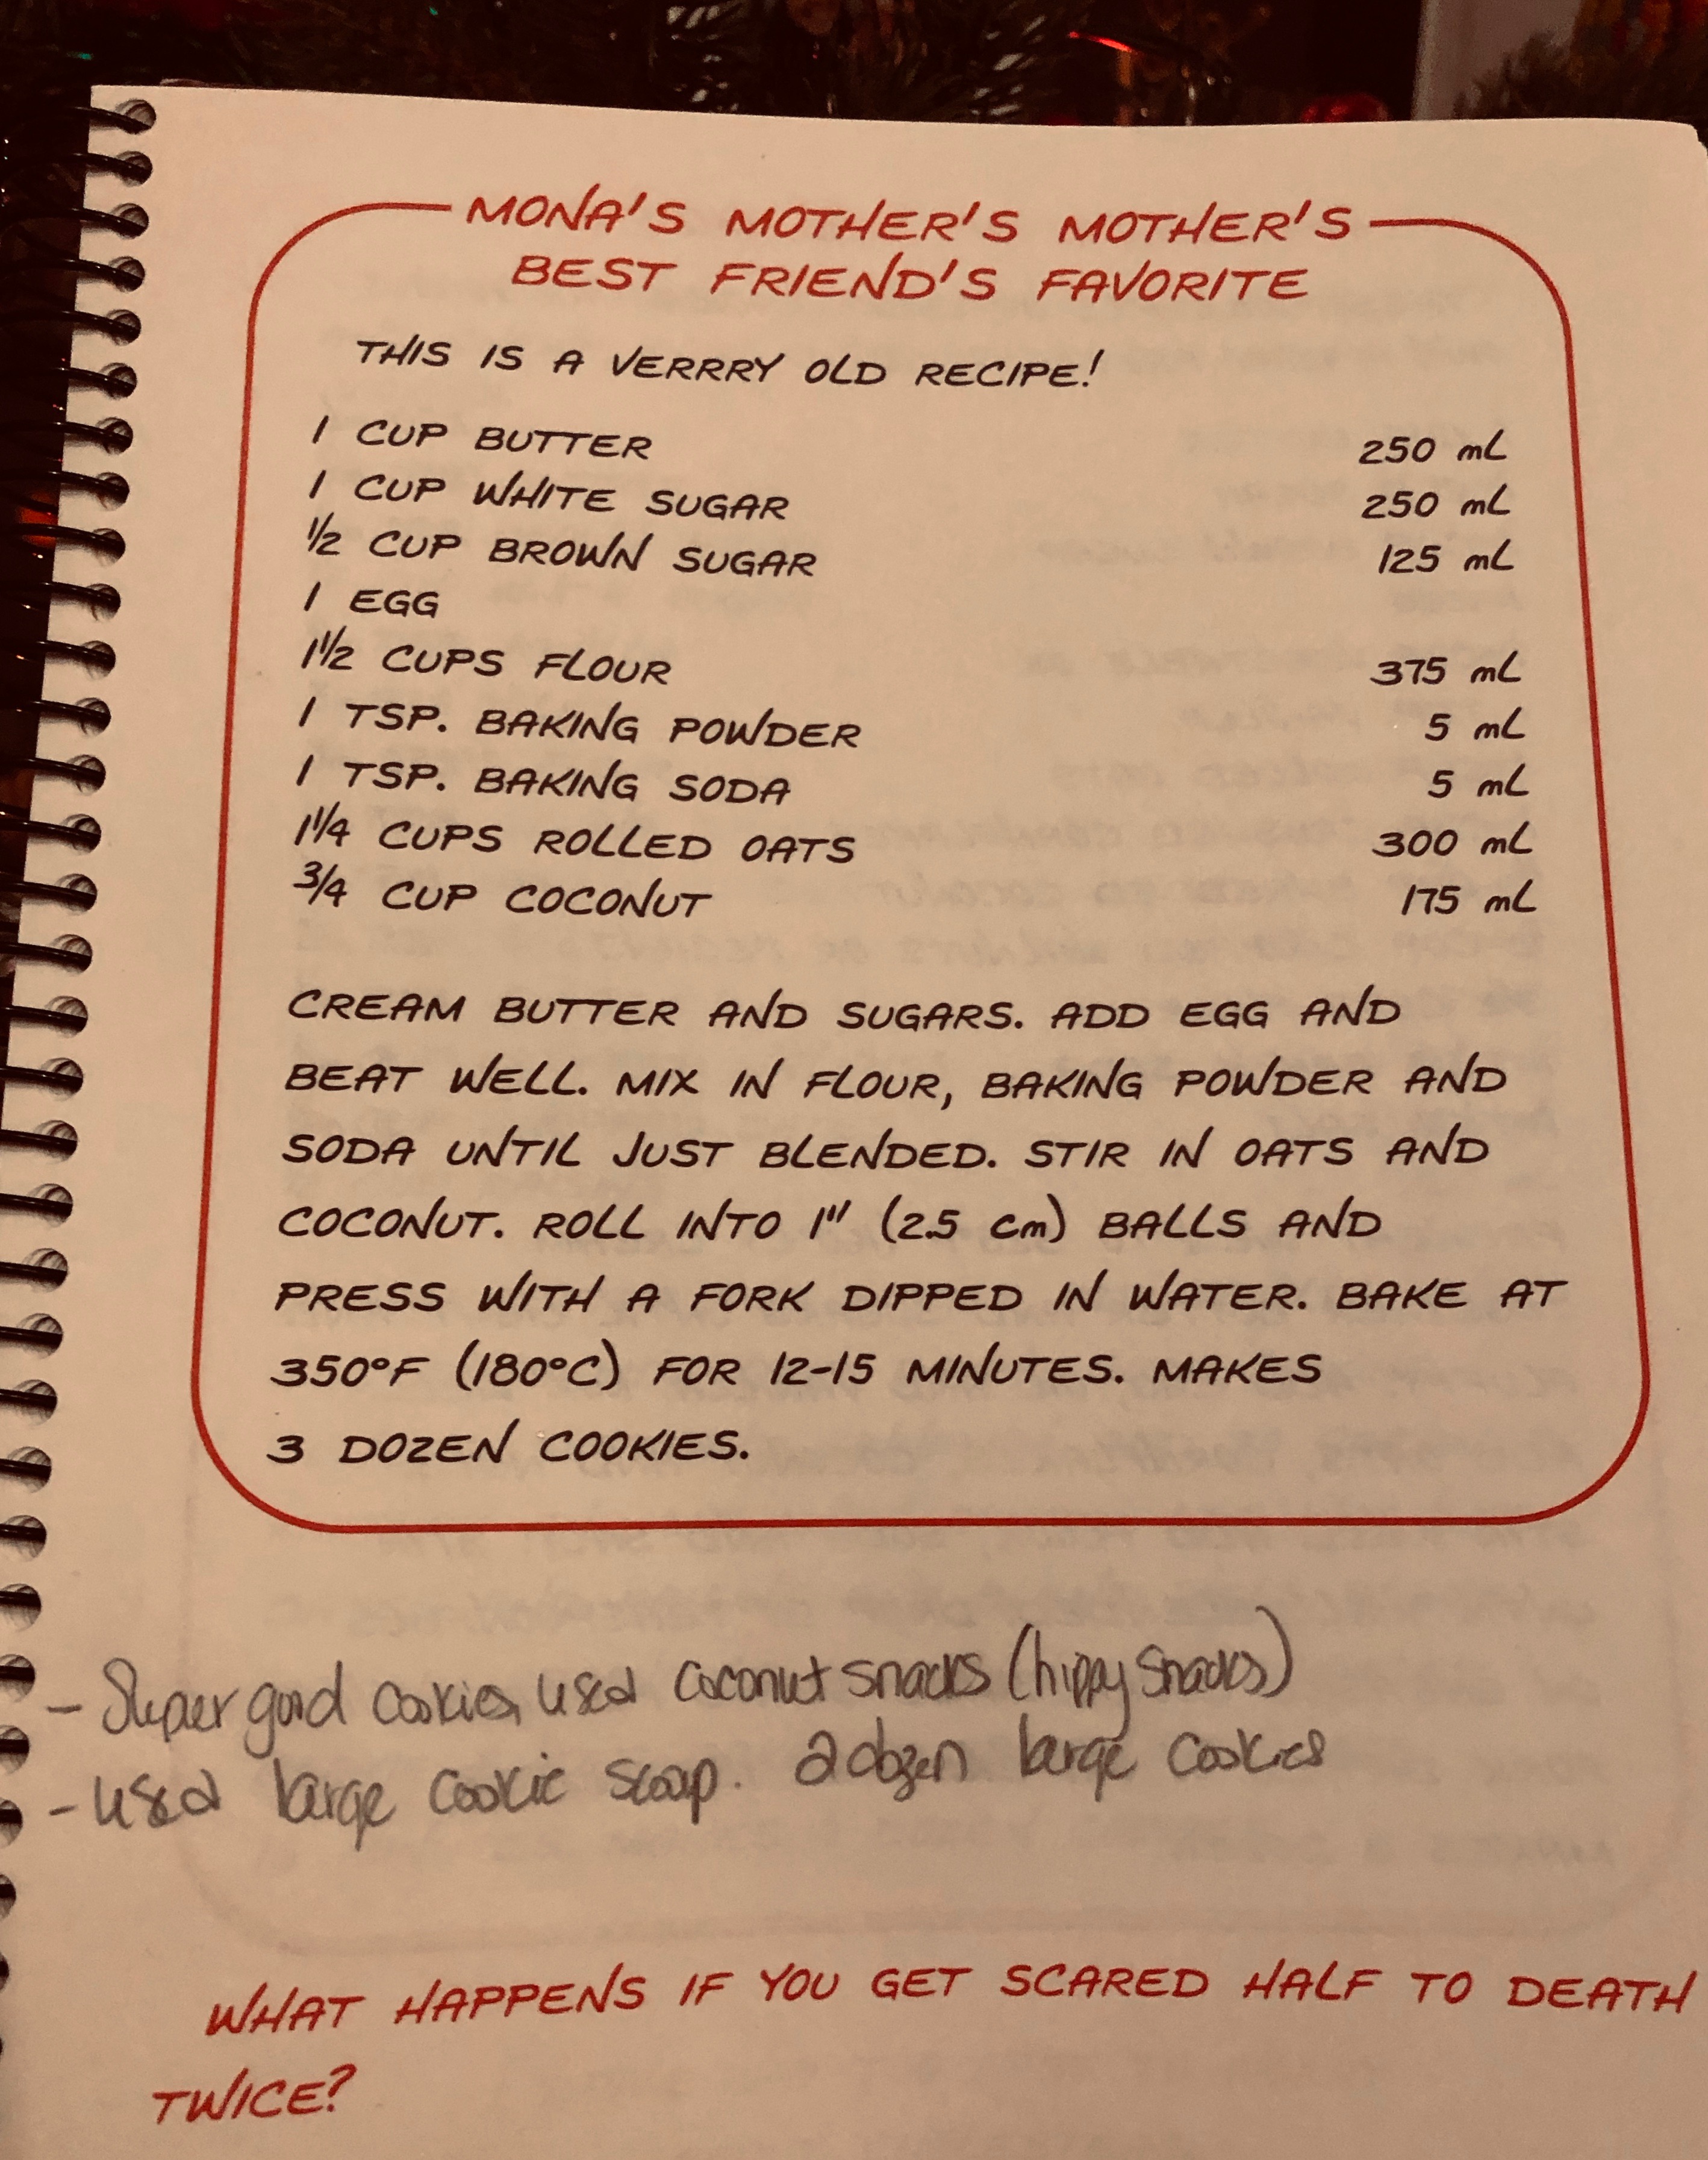 MONA'S MOTHER'S MOTHER'S
BEST FRIEND'S FAVORITE
THIS IS A VERRRY OLD RECIPE!
1 CUP BUTTER 250 mL
1 CUP WHITE SUGAR 250 mL
1/2 CUP BROWN SUGAR 125 mL
1 EGG
1 1/2 CUPS FLOUR 375 mL
1 TSP. BAKING POWDER 5 mL
1 TSP. BAKING SODA 5 mL
1 1/4 CUPS ROLLED OATS 300 mL
3/4 CUP COCONUT 175 mL
CREAM BUTTER AND SUGARS. ADD EGG AND
BEAT WELL. MIX IN FLOUR, BAKING POWDER AND
SODA UNTIL JUST BLENDED. STIR IN OATS AND
COCONUT. ROLL INTO 1" (2.5 cm) BALLS AND
PRESS WITH A FORK DIPPED IN WATER. BAKE AT
350°F (180°C) FOR 12-15 MINUTES. MAKES
3 DOZEN COOKIES.
- Super good cookies, used coconut snacks (hippy snacks)
- used large cookie scoop. 2 dozen large cookies
WHAT HAPPENS IF YOU GET SCARED HALF TO DEATH
TWICE?